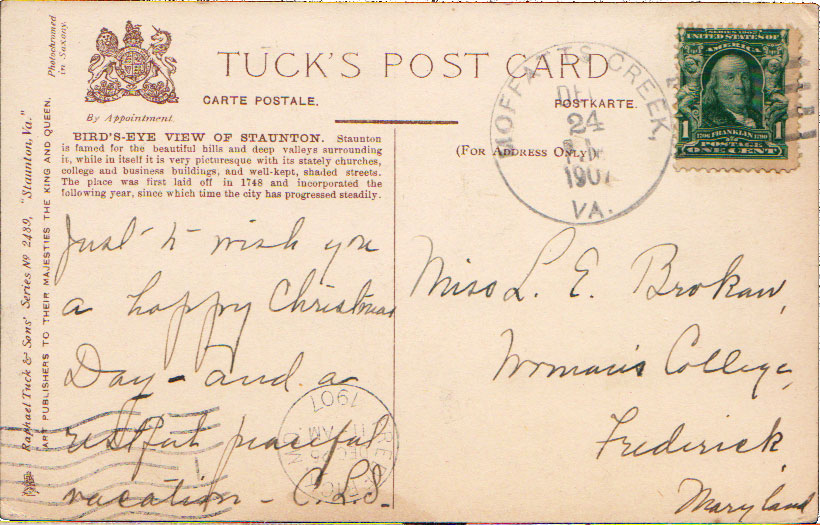 Photochromed
in Saxony.
By Appointment.
TUCK'S POST CARD
CARTE POSTALE.
POSTKARTE.
(FOR ADDRESS ONLY)
Raphael Tuck & Sons' Series Nº 2489, "Staunton, Va."
ART PUBLISHERS TO THEIR MAJESTIES THE KING AND QUEEN.
BIRD'S-EYE VIEW OF STAUNTON. Staunton
is famed for the beautiful hills and deep valleys surrounding
it, while in itself it is very picturesque with its stately churches,
college and business buildings, and well-kept, shaded streets.
The place was first laid off in 1748 and incorporated the
following year, since which time the city has progressed steadily.
Just to wish you
a happy Christmas
Day - and a
restful peaceful
vacation - C.L.S.
MOFFATTS CREEK,
DEC
24
1907
VA.
SERIES 1902
UNITED STATES OF
AMERICA
1706 FRANKLIN 1790
1 POSTAGE 1
ONE CENT
Miss L. E. Brokaw,
Woman's College,
Frederick,
Maryland
1907
11 AM
DEC